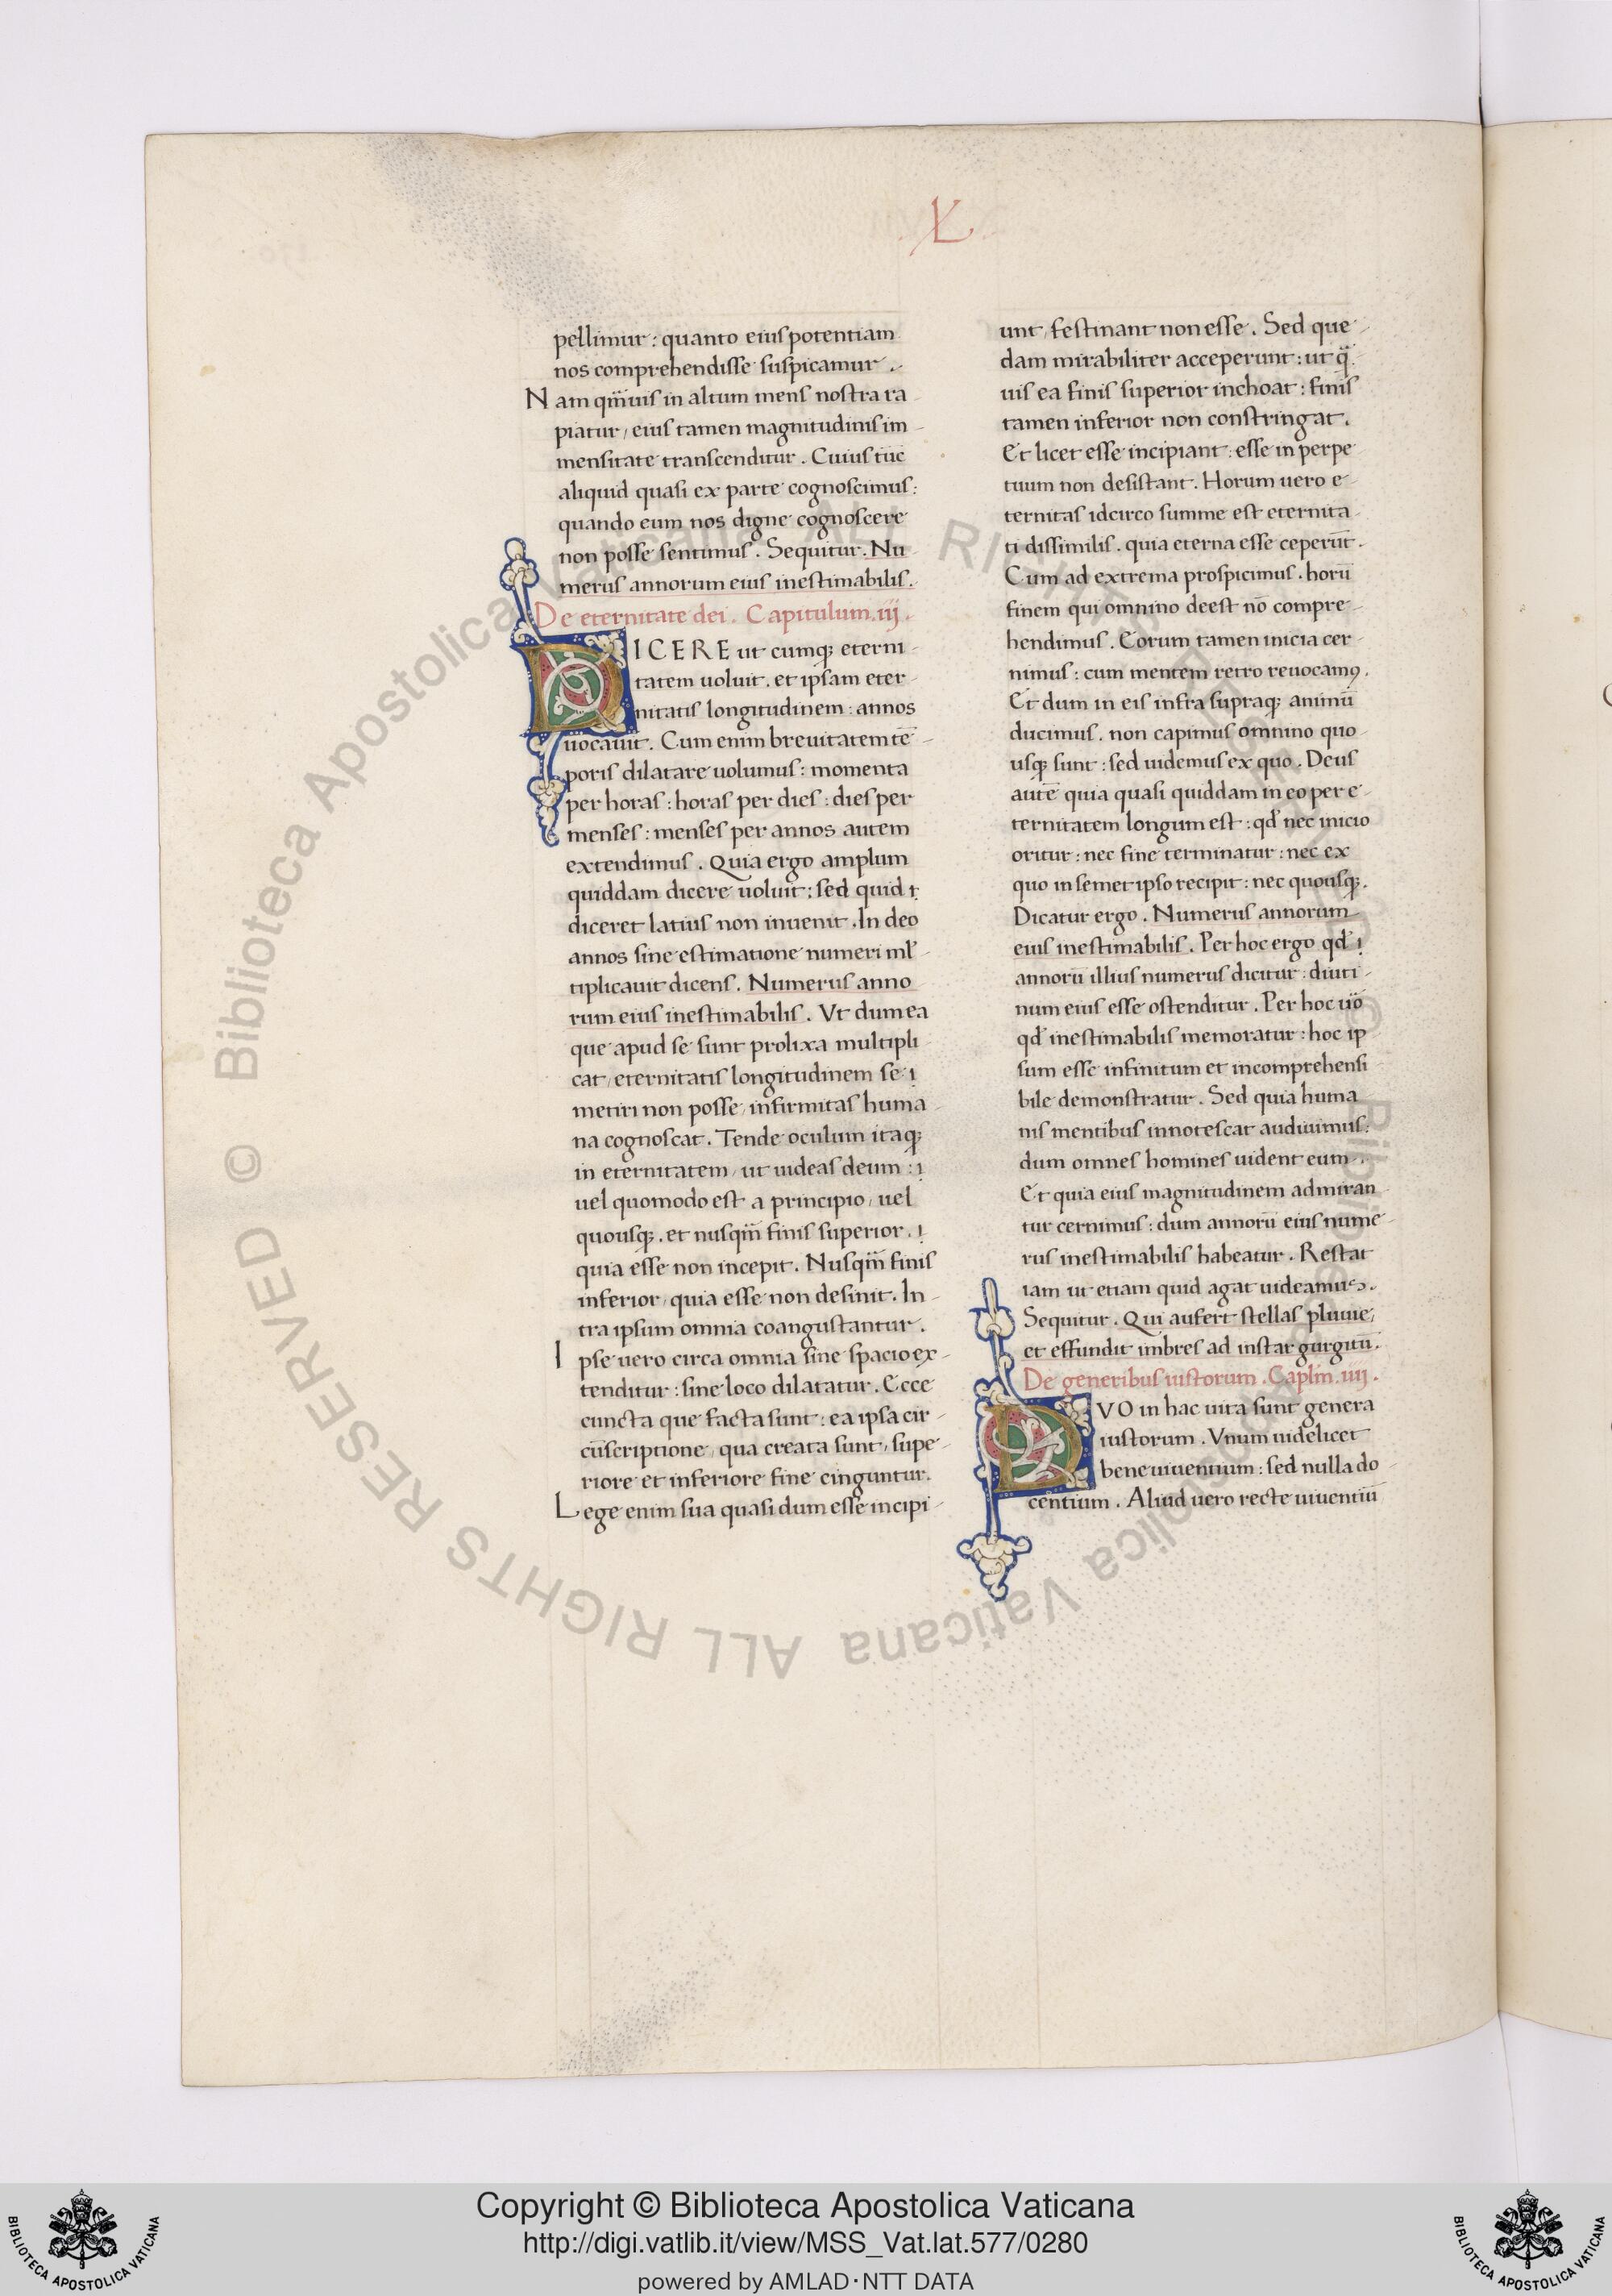 .L.
pellimur : quanto eius potentiam
nos comprehendisse suspicamur .
Nam qm̄uis in altum mens nostra ra
piatur, eius tamen magnitudinis im
mensitate transcenditur . Cuius tūc
aliquid quasi ex parte cognoscimus :
quando eum nos digne cognoscere
non posse sentimus . Sequitur . Nu
merus annorum eius inestimabilis .
De eternitate dei . Capitulum . iij .
DICERE ut cumq; eterni
tatem uoluit . et ipsam eter
nitatis longitudinem : annos
uocauit . Cum enim breuitatem tē
poris dilatare uolumus : momenta
per horas : horas per dies : dies per
menses : menses per annos autem
extendimus . Quia ergo amplum
quiddam dicere uoluit : sed quid
diceret latius non inuenit . In deo
annos sine estimatione numeri ml̄
tiplicauit dicens . Numerus anno
rum eius inestimabilis . Vt dum ea
que apud se sunt prolixa multipli
cat, eternitatis longitudinem se
metiri non posse, infirmitas huma
na cognoscat . Tende oculum itaq;
in eternitatem, ut uideas deum :
uel quomodo est a principio, uel
quousq; . et nusqm̄ finis superior .
quia esse non incepit . Nusqm̄ finis
inferior, quia esse non desinit . In
tra ipsum omnia coangustantur .
Ipse uero circa omnia sine spacio ex
tenditur : sine loco dilatatur . Ecce
cuncta que facta sunt : ea ipsa cir
cūscriptione, qua creata sunt, supe
riore et inferiore fine cinguntur .
Lege enim sua quasi dum esse incipi
unt, festinant non esse . Sed que
dam mirabiliter acceperunt : ut q̄
uis ea finis superior inchoat : finis
tamen inferior non constringat .
Et licet esse incipiant : esse in perpe
tuum non desistant . Horum uero e
ternitas idcirco summe est eternita
ti dissimilis . quia eterna esse ceperūt .
Cum ad extrema prospicimus . horū
finem qui omnino deest nō compre
hendimus . Eorum tamen inicia cer
nimus : cum mentem retro reuocamꝰ .
Et dum in eis infra supraq; animū
ducimus . non capimus omnino quo
usq; sunt : sed uidemus ex quo . Deus
autē quia quasi quiddam in eo per e
ternitatem longum est : qd̄ nec inicio
oritur : nec fine terminatur : nec ex
quo in semet ipso recipit : nec quousq; .
Dicatur ergo . Numerus annorum
eius inestimabilis . Per hoc ergo qd̄
annorū illius numerus dicitur : diuti
num eius esse ostenditur . Per hoc uō
qd̄ inestimabilis memoratur : hoc ip
sum esse infinitum et incomprehensi
bile demonstratur . Sed quia huma
nis mentibus innotescat audiuimus :
dum omnes homines uident eum .
Et quia eius magnitudinem admiran
tur cernimus : dum annorū eius nume
rus inestimabilis habeatur . Restat
iam ut etiam quid agat uideamus .
Sequitur . Qui aufert stellas pluuie,
et effundit imbres ad instar gurgitū .
De generibus iustorum . Caplm̄ . iiij .
DVO in hac uita sunt genera
iustorum . Vnum uidelicet
bene uiuentium : sed nulla do
centium . Aliud uero recte uiuentiū
© Biblioteca Apostolica Vaticana ALL RIGHTS RESERVED © Biblioteca Apostolica Vaticana ALL RIGHTS RESERVED
Copyright © Biblioteca Apostolica Vaticana
http://digi.vatlib.it/view/MSS_Vat.lat.577/0280
powered by AMLAD・NTT DATA
BIBLIOTECA APOSTOLICA VATICANA
BIBLIOTECA APOSTOLICA VATICANA